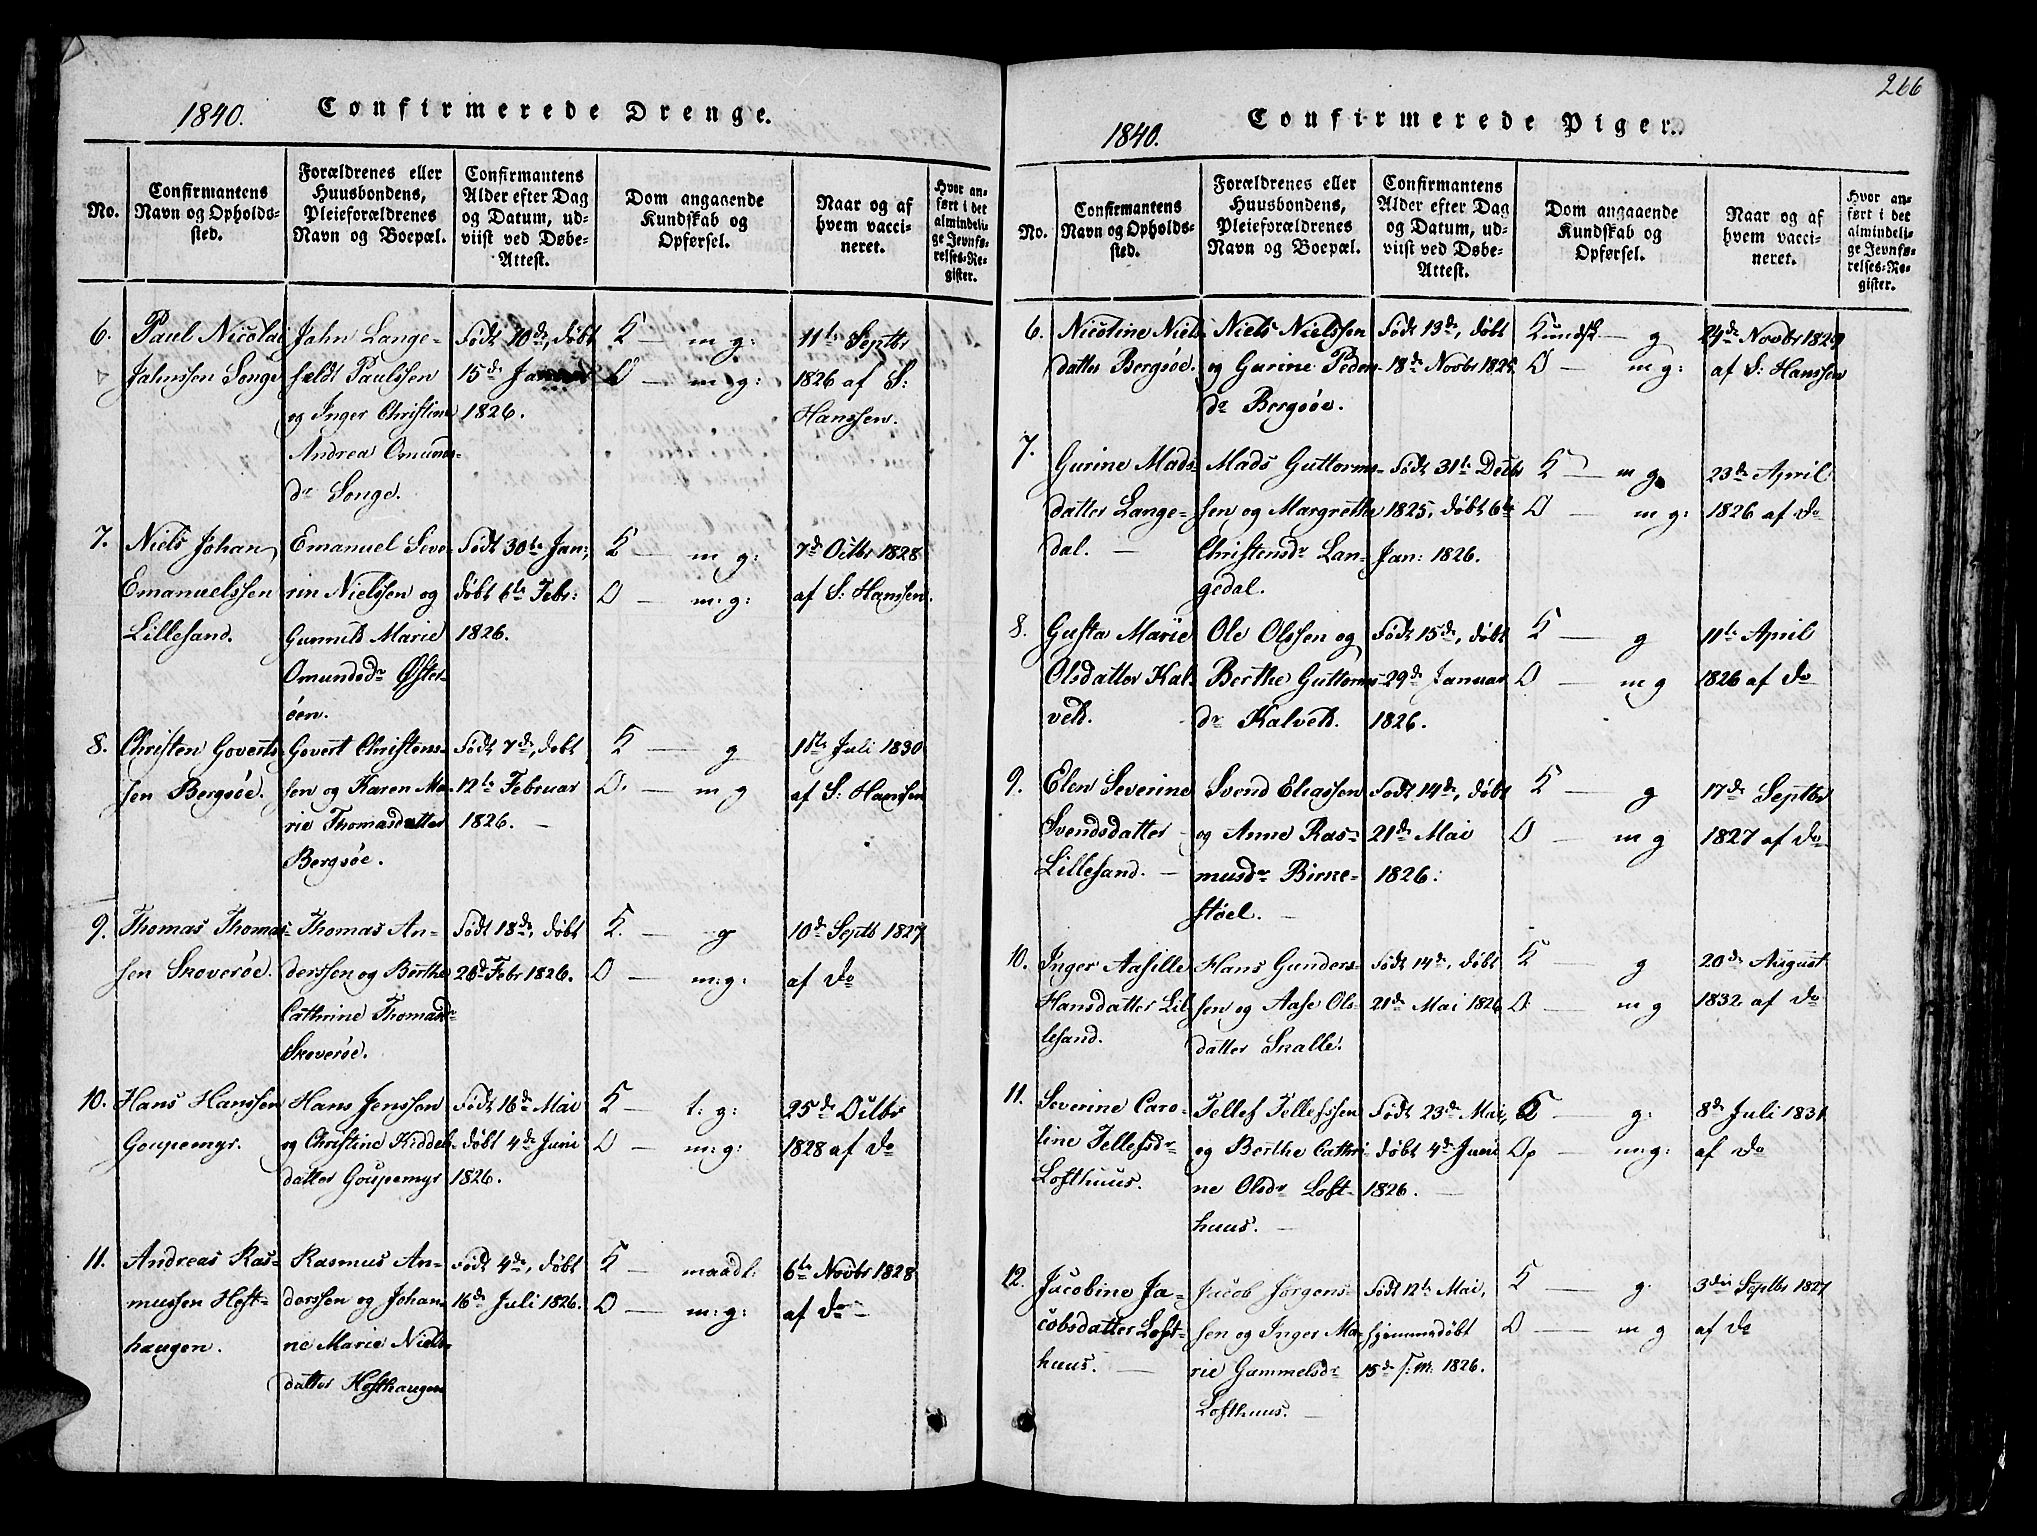 1840. Confirmerede Drenge.
No.
Confirmantens
Navn og Opholds-
sted.
Forældrenes eller
Huusbondens,
Pleieforældrenes
Navn og Boepæl.
Confirmantens
Alder efter Dag
og Datum, ud-
viist ved Døbe-
Attest.
Dom angaaende
Kundskab og
Opførsel.
Naar og af
hvem vacci-
neret.
Hvor an-
ført i det
almindeli-
ge Jevnfø-
relses-Re-
gister.
6. Paul Nicolai
Jahnssen Songe
Jahn Lange-
feldt Paulssen
og Inger Christine
Andrea Omunds-
dr Songe.
Født 10de, døbt
15de Januar
1826.
K — m g:
O — m g:
11te Septbr
1826 af S:
Hanssen.
7. Niels Johan
Emanuelssen
Lillesand.
Emanuel Seve-
rin Nielssen og
Gunnild Marie
Omundsdr Øster-
öen.
Født 30te Jan:,
døbt 6te Febr:
1826.
K — m g:
O — m: g:
7de Octbr 1828
af S: Hanssen.
8. Christen Goverts-
sen Bergsöe.
Govert Christens-
sen og Karen Ma-
rie Thomasdatter
Bergsöe.
Født 7de, døbt
12te Februar
1826. —
K — g
O. — m g
Juli 1830
af S: Hanssen
9. Thomas Thomas-
sen Skoveröe.
Thomas An-
derssen og Berthe
Cathrine Thomasdr
Skoveröe.
Født 18de, døbt
26de Febr 1826.
K. — g
O — m: g:
10de Septb 1827
af do
10. Hans Hanssen
Goupemyr.
Hans Jenssen
og Christine Kiddels-
datter Goupemyr
Født 16de Mai
døbt 4de Juni
1826.
K — t: g:
O — m: g:
25de Octbr
1828 af do
11. Andreas Ras-
mussen Heft-
haugen.
Rasmus An-
derssen og Johan-
ne Marie Niels-
datter Hefthaugen
Født 4de, døbt
16de Juli 1826.
K — maadl:
O — m: g:
6te Novbr 1828
af do —
266
1840. Confirmerede Piger.
No.
Confirmantens
Navn og Opholds-
sted.
Forældrenes eller
Huusbondens,
Pleieforældrenes
Navn og Boepæl.
Confirmantens
Alder efter Dag
og Datum, ud-
viist ved Døbe-
Attest.
Dom angaaende
Kundskab og
Opførsel.
Naar og af
hvem vacci-
neret.
Hvor an-
ført i det
almindeli-
ge Jevnfø-
relses-Re-
gister.
6. Nicoline Niels-
datter Bergsöe.
Niels Nielssen
og Gurine Peders-
dr Bergsöe.
Født 13de, døbt
18de Novbr 1825.
Kundsk — g
O — m g:
24de Novbr 1829
af S: Hanssen
7. Gurine Mads-
datter Lange-
dal. —
Mads Guttorms-
sen og Margrethe
Christensdr Lan-
gedal.
Født 31te Decbr
1825, døbt 6te
Jan: 1826.
K — m g.
O — m g:
23de April
1826 af do
8. Gusta Marie
Olsdatter Kal-
veld.
Ole Olssen og
Berthe Guttorms-
dr Kalveld.
Født 15de, døbt
29de Januar
1826.
K — g
O — m g
11te April
1826 af do
9. Elen Severine
Svendsdatter
Lillesand. —
Svend Eliassen
og Anne Ras-
musdr Birke-
støel. —
Født 14de, døbt
21de Mai
1826.
K — g
O — m g
17de Septbr
1827 af do
10. Inger Aasille
Hansdatter Lil-
lesand.
Hans Gunders-
sen og Aase Ols-
datter Skalle.
Født 14de, døbt
21de Mai 1826
K — g
O. — m g
20de August
1832. af do
11. Severine Caro-
line Tellefsdr
Lofthuus.
Tellef Tellefssen
og Berthe Cathri-
ne Olsdr Loft-
huus. —
Født 23de Mai,
døbt 4de Juni
1826. —
K — g:
O — m: g:
8de Juli 1831
af do
12. Jacobine Ja-
cobsdatter Loft-
huus. —
Jacob Jörgens-
sen og Inger Ma-
rie Gammelsdr
Lofthuus. —
Født 12te Mai,
hjemmedøbt
15de s: m: 1826.
K — g.
O — m g
3die Septbr 1827
af do